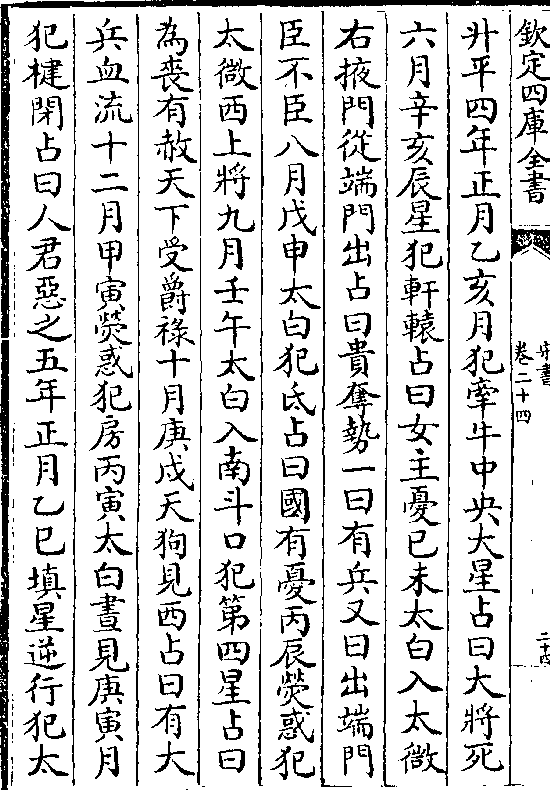 欽定四庫全書
宋書
卷二十四
二十四
升平四年正月乙亥月犯牽牛中央大星占曰大將死
六月辛亥辰星犯軒轅占曰女主憂已未太白入太微
右掖門從端門出占曰貴奪勢一曰有兵又曰出端門
臣不臣八月戊申太白犯氐占曰國有憂丙辰熒惑犯
太微西上將九月壬午太白入南斗口犯第四星占曰
為喪有赦天下受爵祿十月庚戌天狗見西占曰有大
兵血流十二月甲寅熒惑犯房丙寅太白晝見庚寅月
犯楗閉占曰人君惡之五年正月乙巳填星逆行犯太